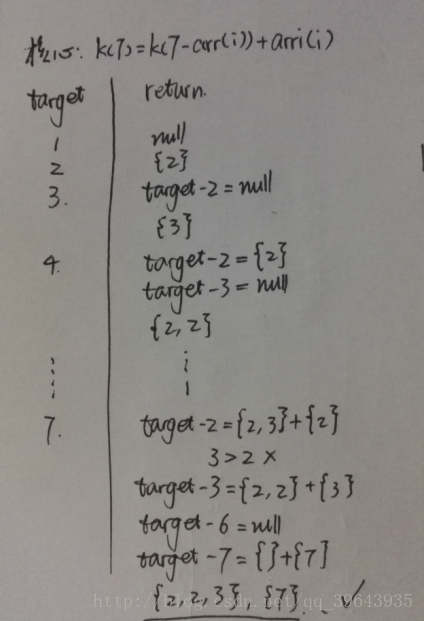 k(7)=k(7-arr(i))+arr(i)
target return.
1 null
2 {2}
3. target-2=null
{3}
4. target-2={2}
target-3=null
{2,2}
7. target-2={2,3}+{2}
3>2 ×
target-3={2,2}+{3}
target-6=null
target-7={}+{7}
{2,2,3},{7} ✓
http://blog.csdn.net/qq_39643935